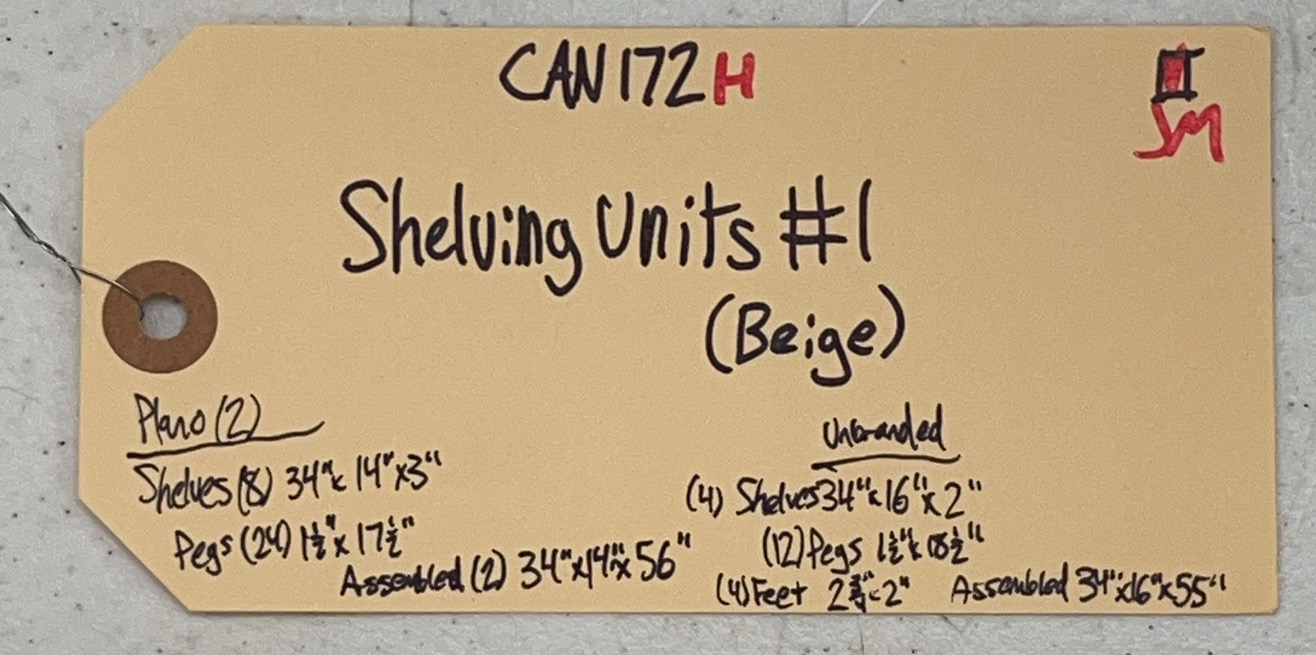 CAN172H
SM
Shelving Units #1
(Beige)
Plano (2)
Shelves (8) 34"x 14"x3"
Pegs (24) 1½"x 17½"
Assembled (2) 34"x14"x56"
Unbranded
(4) Shelves 34"x16"x2"
(12) Pegs 1½"x 18½"
(4) Feet 2¾"x2"
Assembled 34"x16"x55"